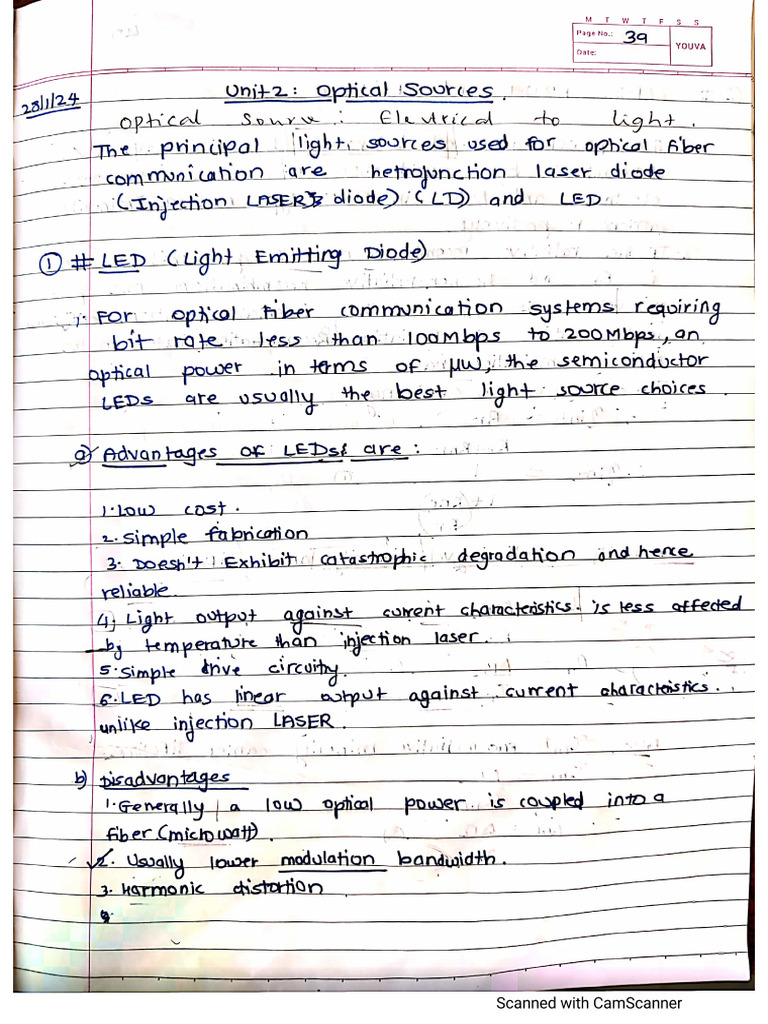 M T W T F S S
Page No.: 39
Date:
YOUVA
28/1/24
Unit 2: Optical Sources.
Optical Source: Electrical to light.
The principal light sources used for optical fiber
communication are hetrojunction laser diode
(Injection LASER diode) (LD) and LED
① # LED (Light Emitting Diode)
1. For optical Fiber communication systems requiring
bit rate less than 100Mbps to 200Mbps, an
optical power in terms of μW, the semiconductor
LEDs are usually the best light source choices.
a) Advantages of LEDs are:
1. Low cost.
2. simple fabrication
3. Doesn't Exhibit catastrophic degradation and hence
reliable.
4) Light output against current characteristics. is less affected
by temperature than injection laser.
5. Simple drive circuity.
6. LED has linear output against current characteristics.
unlike injection LASER.
b) Disadvantages
1. Generally a low optical power is coupled into a
fiber (microwatt).
2. Usually lower modulation bandwidth.
3. Harmonic distortion
Scanned with CamScanner